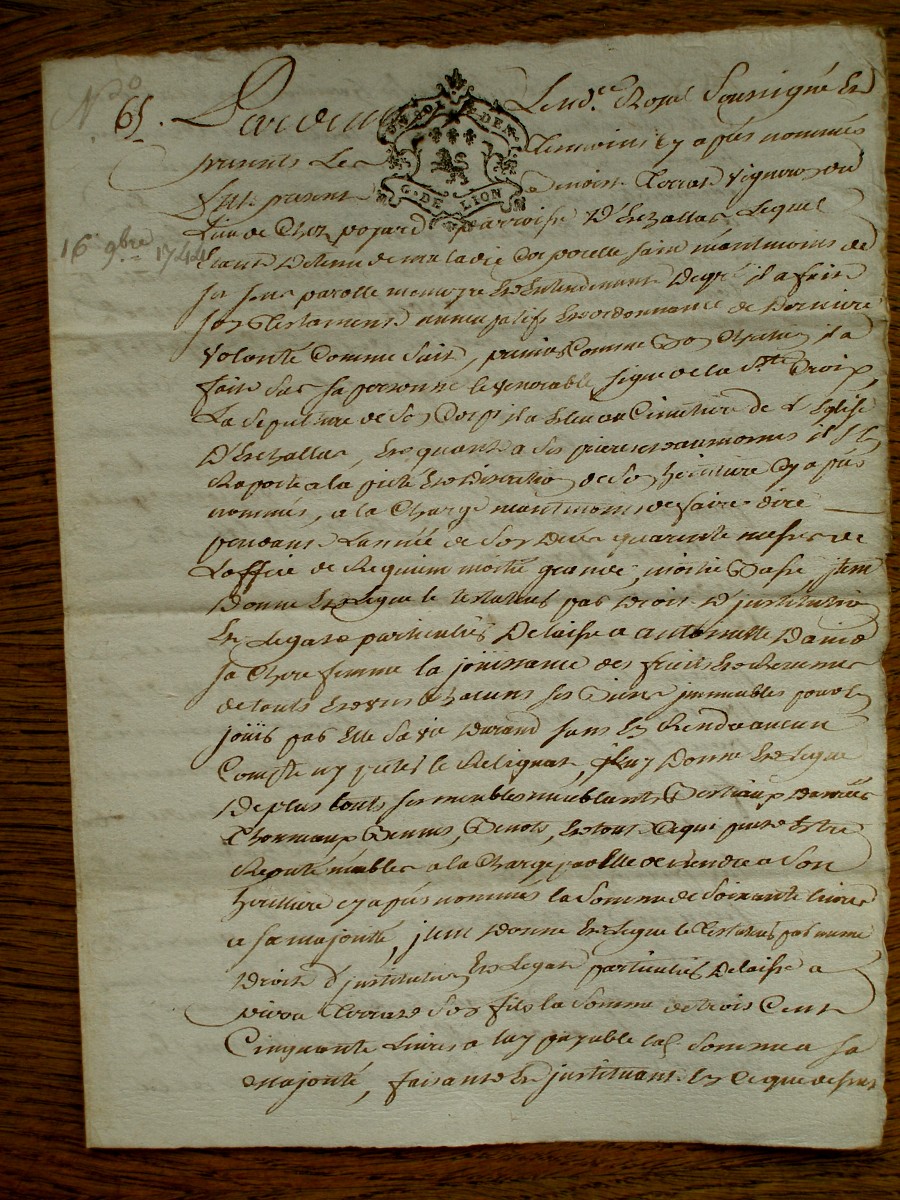 N° 
65.
16 9bre 1744
UN SOL 4 DEN
G. DE LION
Pardevant Le no.re Royal Soussigné Et
presents Les Temoins cy apés nommés
fut present Benoist Terrat vigneron du
Lieu de Chez pojard parroisse D'Echallas Lequel
Etant Detenu de maladie Corporelle sain néantmoins de
ses sens parolle memoyre Et Entendement De gré il a fait
son Testament nuncupatif Et ordonnance de Derniere
volonté Comme suit, premier Comme Bon Chretien il a
fait sur sa personne le venerable signe de la Ste Croix
La sepulture de son Corps il a Elu au Cimetiere de L'Eglise
D'Echallas, Et quant a ses prieres et aumones il s'En
Raporte a la pieté Et discretion de son heritiere cy apés
nommée, a la Charge néantmoins de faire dire
pendant L'année de son Decés quarente messes de
L'office de Requiem moitié grande, moitié Basse, jtem
Donne Et Legue le testateur par Droit D'jnstitution
Et Legat particulier Delaisse a antoinette
sa Chere femme la joüissance des fruits Et Revenus
de touts Et uns Chacuns ses Biens jmmeubles pour En
joüir par Elle sa vie Durand sans En Rendre aucun
Compte ny preter le Reliquat, jl luy Donne Et Legue
De plus touts ses meubles meublants, Bestiaux Danrées
Thonneaux Bennes, Benots, Et tout Ce qui peut Estre
Reputé meubles a la Charge par Elle de Rendre a Son
heritiere cy apés nommée la Somme de Soixante livres
a sa majorité, jtem Donne Et Legue le Testateur par meme
Droit d'jnstitution Et Legat particulier Delaisse a
Terrat Son fils la Somme de trois Cent
Cinquante Livres a luy payable lad. Somme a sa
majorité, faisant Et jnstituant En Ce que dessus